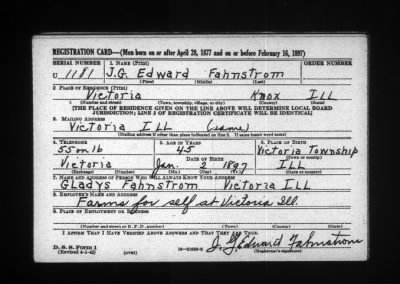 REGISTRATION CARD—(Men born on or after April 28, 1877 and on or before February 16, 1897)
SERIAL NUMBER 1. NAME (Print) ORDER NUMBER
U 1181 J.G. Edward Fahnstrom
(First) (Middle) (Last)
2. PLACE OF RESIDENCE (Print)
Victoria Knox Ill
(Number and street) (Town, township, village, or city) (County) (State)
[THE PLACE OF RESIDENCE GIVEN ON THE LINE ABOVE WILL DETERMINE LOCAL BOARD
JURISDICTION; LINE 2 OF REGISTRATION CERTIFICATE WILL BE IDENTICAL]
3. MAILING ADDRESS
Victoria Ill (same)
[Mailing address if other than place indicated on line 2. If same insert word same]
4. TELEPHONE 5. AGE IN YEARS 6. PLACE OF BIRTH
55 on 16 45 Victoria Township
DATE OF BIRTH (Town or county)
Victoria Jan. 2 1897 Ill
(Exchange) (Number) (Mo.) (Day) (Yr.) (State or country)
7. NAME AND ADDRESS OF PERSON WHO WILL ALWAYS KNOW YOUR ADDRESS
Gladys Fahnstrom Victoria Ill
8. EMPLOYER'S NAME AND ADDRESS
Farms for self at Victoria Ill.
9. PLACE OF EMPLOYMENT OR BUSINESS
(Number and street or R. F. D. number) (Town) (County) (State)
I AFFIRM THAT I HAVE VERIFIED ABOVE ANSWERS AND THAT THEY ARE TRUE.
D. S. S. Form 1
(Revised 4-1-42) (over) J. G. Edward Fahnstrom
(Registrant's signature)